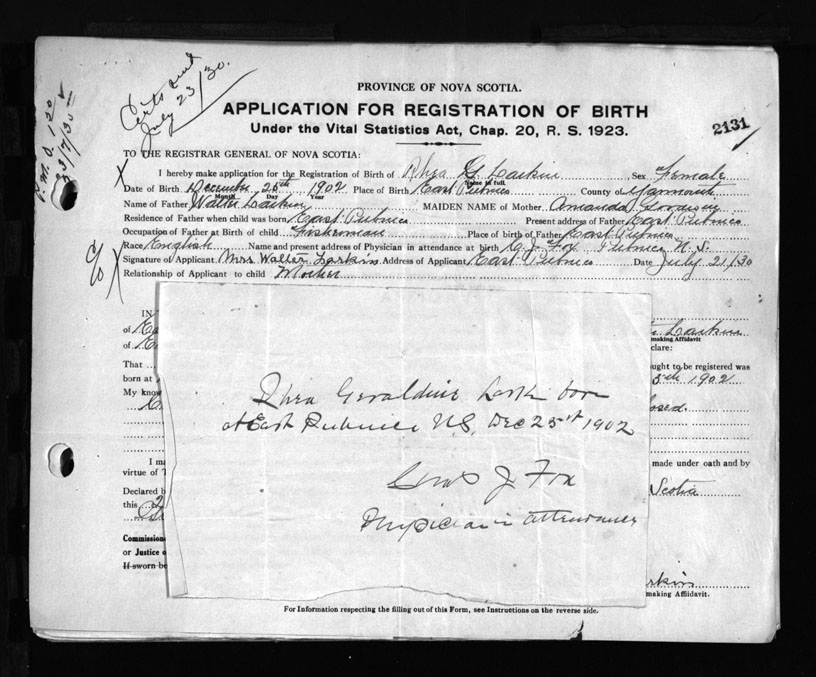 Certs and
July 23/30.
23/7/30
PROVINCE OF NOVA SCOTIA.
APPLICATION FOR REGISTRATION OF BIRTH
Under the Vital Statistics Act, Chap. 20, R. S. 1923.
2131
TO THE REGISTRAR GENERAL OF NOVA SCOTIA:
X I hereby make application for the Registration of Birth of Rhea G. Larkin Sex Female
Name in full
Date of Birth December 25th 1902 Place of Birth East Pubnico County of Yarmouth
Month Day Year
Name of Father Walter Larkin MAIDEN NAME of Mother Amanda
Residence of Father when child was born East Pubnico Present address of Father East Pubnico
Occupation of Father at Birth of child Fisherman Place of birth of Father East Pubnico
Race English Name and present address of Physician in attendance at birth C. J. Fox Pubnico N. S.
c/o X Signature of Applicant Mrs Walter Larkin Address of Applicant East Pubnico Date July 21/30
Relationship of Applicant to child Mother
IN
of Ea Larkin
making Affidavit
of E clare:
That ought to be registered was
born at 5th 1902
My know
losed.
Rhea Geraldine Larkin born
at East Pubnico N.S. Dec 25st 1902
J Fox
Physician in attendance
I ma made under oath and by
virtue of Scotia
Declared b
this 2
Commissione
or Justice o
If sworn be rkin
making Affidavit.
For Information respecting the filling out of this Form, see Instructions on the reverse side.